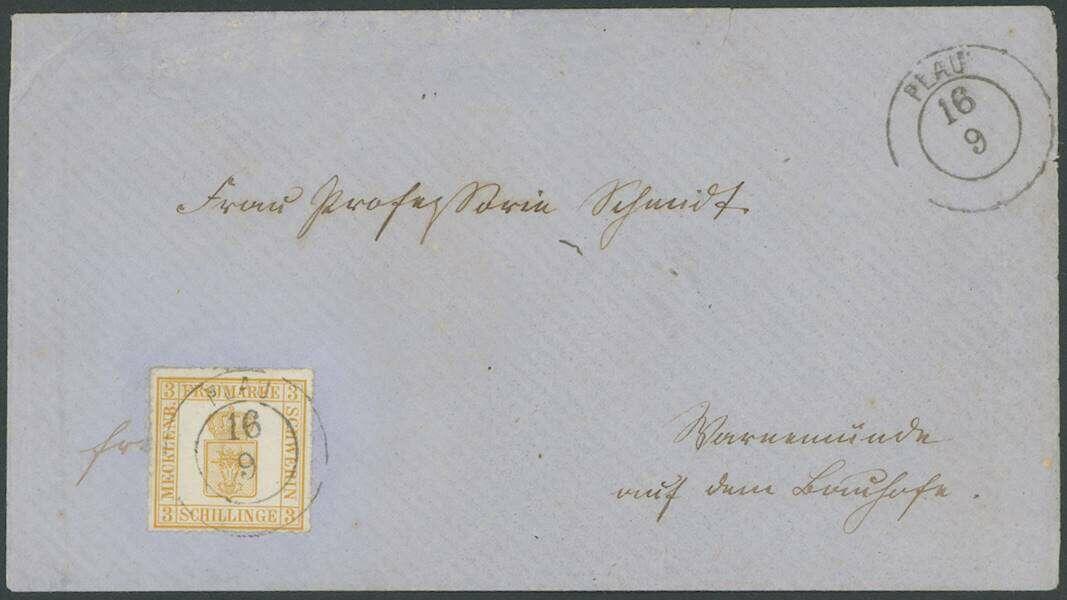 PLAU
16
9
Frau Professorin Schmidt
3 FREIMARKE 3
MECKLENB.
SCHWERIN
PLAU
16
9
3 SCHILLINGE 3
Warnemünde
auf dem Bauhofe.